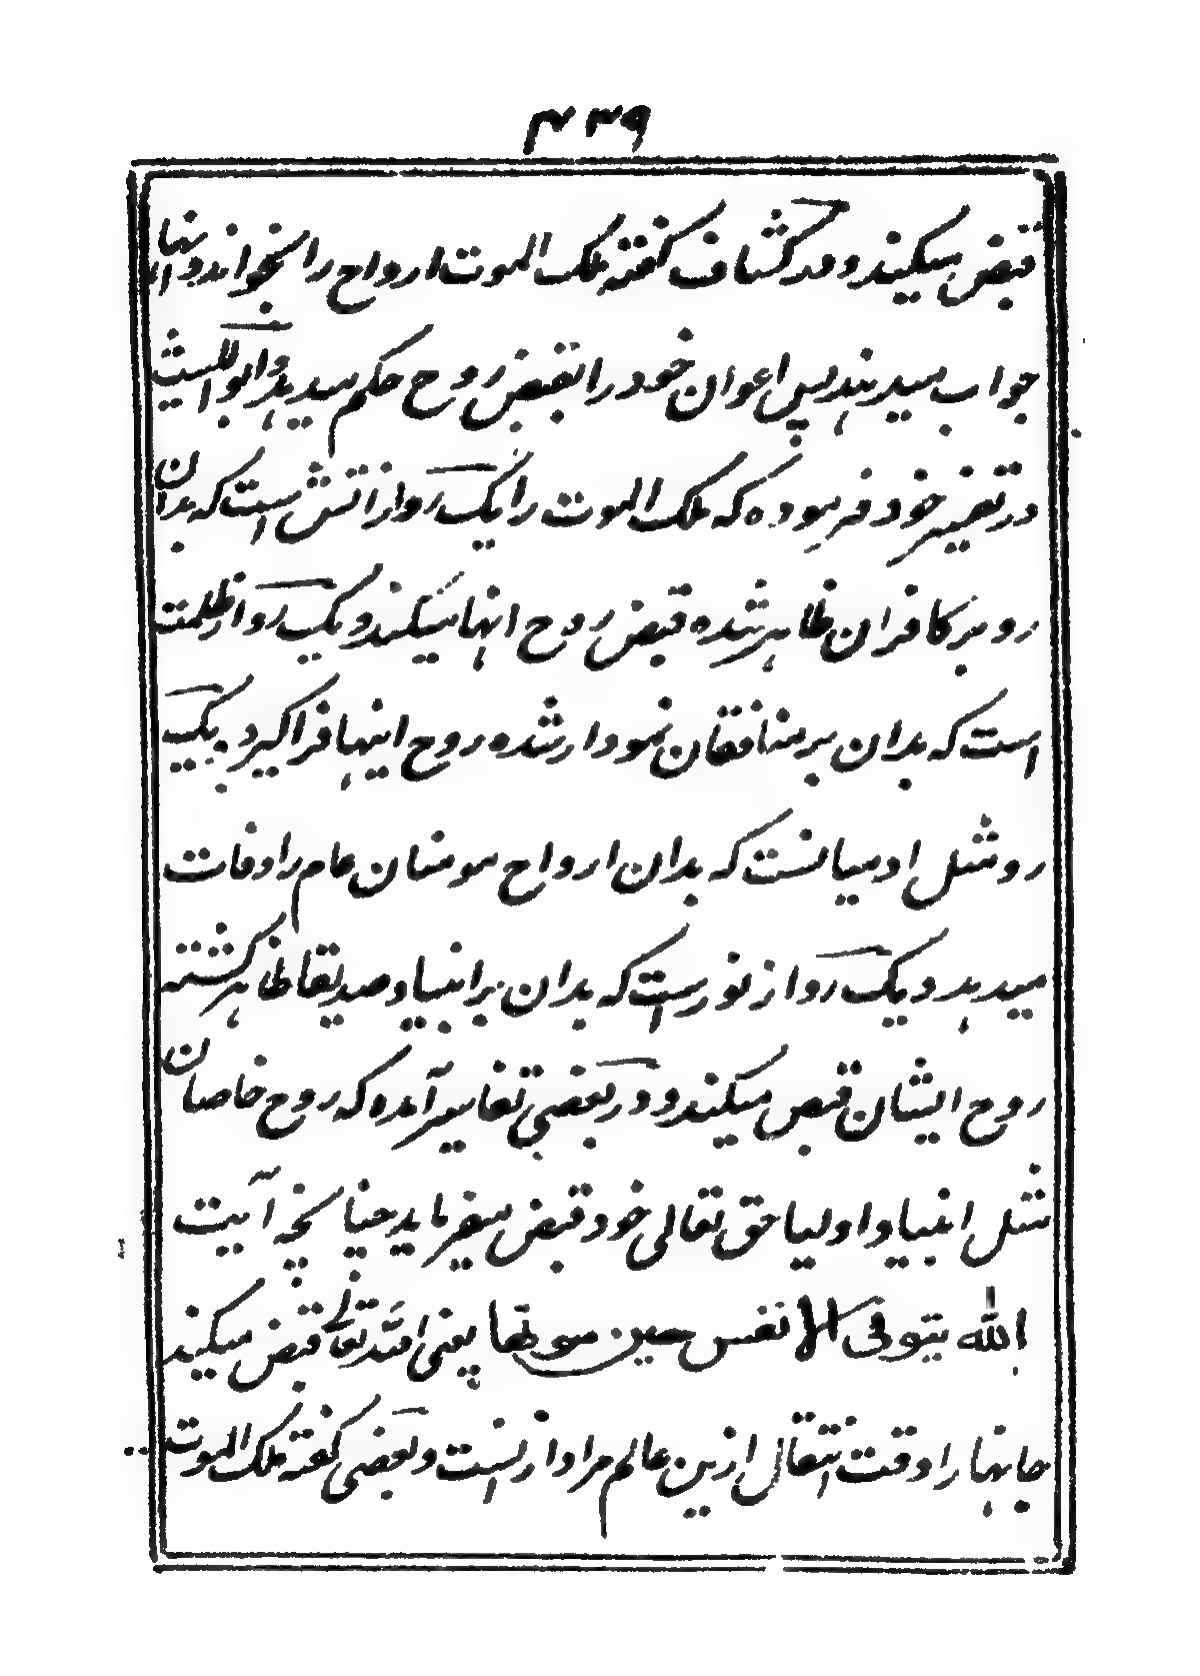 ۴۳۹
قبض میکند و در کشاف گفته ملک الموت ارواح را میخواند و اینها
جواب میدهند پس اعوان خود را بقبض روح حکم میدهد و ابو اللیث
در تفسیر خود فرموده که ملک الموت را یک رو از اتش است که بدان
رو بر کافران ظاهر شده قبض روح انها میکند و یک رو از ظلمت
است که بدان بر منافقان نمودار شده روح اینها فرا گیرد یک
رو مثل ادمیانست که بدان ارواح مومنان عام را وفات
میدهد و یک رو از نورست که بدان بر انبیا و صدیقا ظاهر گشته
روح ایشان قبض میکند و در بعضی تفاسیر آمده که روح خاصان
مثل انبیا و اولیا حق تعالی خود قبض میفرماید چنانچه آیت
الله یتوفی الانفس حین موتها یعنی الله تعالی قبض میکند
جانها را وقت انتقال ازین عالم مراد ازنست و بعضی گفته ملک الموت